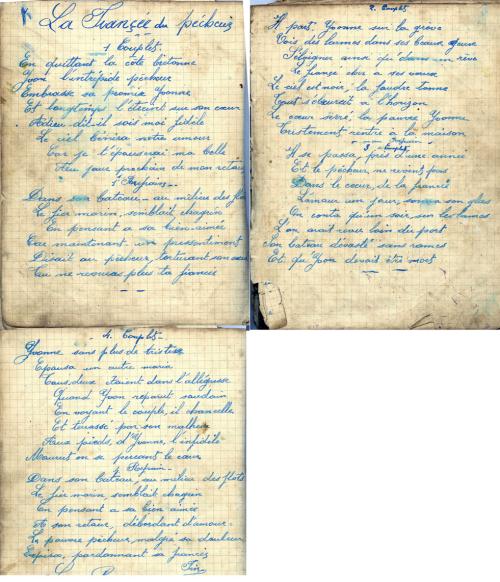 La Fiancée du pêcheur
1 Couplet
En quittant la côte bretonne
Yvon l'intrépide pêcheur
Embrasse sa promise Yvonne
Et longtemps l'étreint sur son cœur
Adieu dit-il sois moi fidèle
Le ciel bénira notre amour
Car je t'épouserai ma belle
Au jour prochain de mon retour
1 Refrain
Dans son bateau au milieu des flots
Le fier marin, semblait chagrin
En pensant a sa bien-aimée
Car maintenant un pressentiment
Disait au pêcheur, torturant son cœur
Tu ne reverras plus ta fiancée
2. Couplet
Il part Yvonne sur la grève
Vois des larmes dans ses beaux yeux
S'éloigner ainsi qu'dans un rêve
Le fiancé cher a ses vœux
Le ciel est noir, la foudre tonne
Tout s'obscurcit a l'horizon
Le cœur serré, la pauvre Yvonne
Tristement rentre à la maison
Refrain
3 Couplet
Il se passa, près d'une année
Et le pêcheur, ne revint pas
Dans le cœur, de la fiancée
L'amour un jour, sonna son glas
On conta qu'un soir, sur les lames
L'on avait vu loin du port
Son bateau dévasté sans rames
Et qu'Yvon devait être mort
4. Couplet
Yvonne sans plus de tristesse
Epousa un autre marin
Tous deux étaient dans l'allégresse
Quand Yvon reparut soudain
En voyant le couple, il chancelle
Et terassé par son malheur
Aux pieds, d'Yvonne, l'infidèle
Mourut en se perçant le cœur
4 Refrain
Dans son bateau, au milieu des flots
Le fier marin, semblait chagrin
En pensant a sa bien aimée
A son retour, débordant d'amour
Le pauvre pêcheur, malgré sa douleur
Expira, pardonnant sa fiancée
Fin